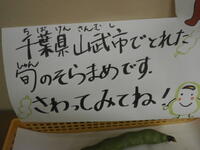 ちばけん さんむし
千葉県山武市でとれた
しゅん
旬のそらまめです.
さわってみてね!